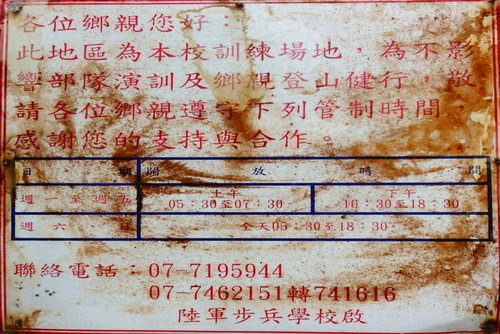 各位鄉親您好：
此地區為本校訓練場地，為不影
響部隊演訓及鄉親登山健行，敬
請各位鄉親遵守下列管制時間，
感謝您的支持與合作。
日 期 開 放 時 間
週一至週五 上午 05：30至07：30 下午 16：30至18：30
週六 日 全天05：30至18：30
聯絡電話：07-7195944
07-7462151轉741616
陸軍步兵學校啟